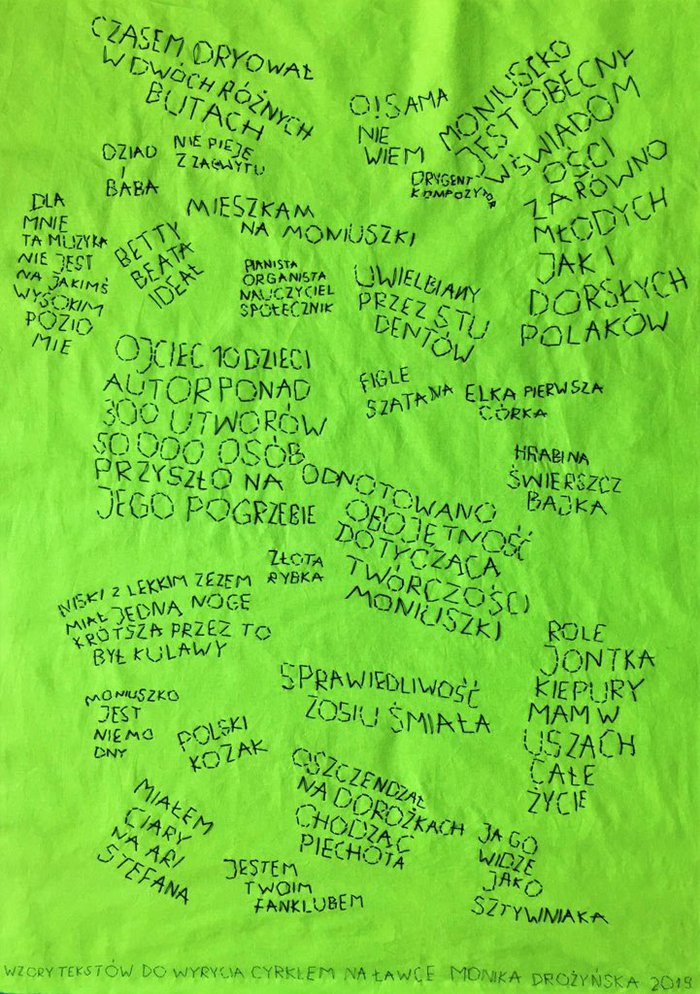 CZASEM DRYOWAŁ
W DWÓCH RÓŻNYCH
BUTACH
O! SAMA
NIE
WIEM
MONIUSZKO
JEST OBECNY
W ŚWIADOM
OŚCI
ZARÓWNO
MŁODYCH
JAK I
DORSŁYCH
POLAKÓW
DZIAD
I
BABA
NIE PIEJĘ
Z ZACWYTU
DRYGENT
KOMPOZYTOR
MIESZKAM
NA MONIUSZKI
DLA
MNIE
TA MUZYKA
NIE JEST
NA JAKIMŚ
WYSOKIM
POZIO
MIE
BETTY
BEATA
IDEAŁ
PIANISTA
ORGANISTA
NAUCZYCIEL
SPOŁECZNIK
UWIELBIANY
PRZEZ STU
DENTÓW
OJCIEC 10 DZIECI
AUTOR PONAD
300 UTWORÓW
50 000 OSÓB
PRZYSZŁO NA
JEGO POGRZEBIE
FIGLE
SZATANA
ELKA PIERWSZA
CÓRKA
HRABINA
ŚWIERSZCZ
BAJKA
ODNOTOWANO
OBOJĘTNOŚĆ
DOTYCZĄCĄ
TWÓRCZOŚCI
MONIUSZKI
ZŁOTA
RYBKA
NISKI Z LEKKIM ZEZEM
MIAŁ JEDNĄ NOGE
KRÓTSZA PRZEZ TO
BYŁ KULAWY
SPRAWIEDLIWOŚĆ
ZOSIU ŚMIAŁA
ROLE
JONTKA
KIEPURY
MAM W
USZACH
CAŁE
ŻYCIE
MONIUSZKO
JEST
NIEMO
DNY
POLSKI
KOZAK
OSZCZENDZAŁ
NA DOROŻKACH
CHODZĄC
PIECHOTA
MIAŁEM
CIARY
NA ARI
STEFANA
JESTEM
TWOIM
FANKLUBEM
JA GO
WIDZE
JAKO
SZTYWNIAKA
WZORY TEKSTÓW DO WYRYCIA CYRKLEM NA ŁAWCE MONIKA DROŻYŃSKA 2019